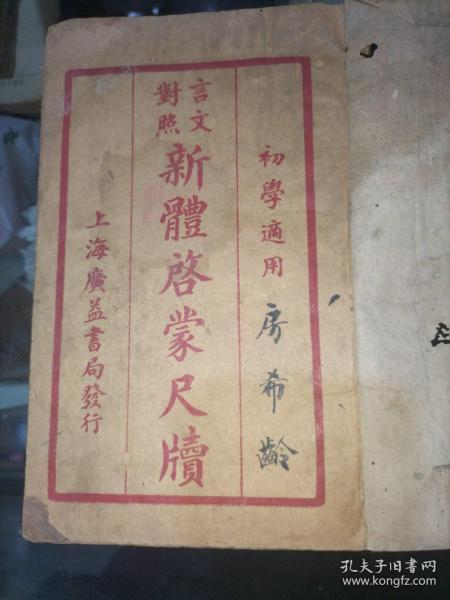 初學適用
房希齡
言文
對照
新體啓蒙尺牘
上海廣益書局發行
孔夫子旧书网
www.kongfz.com